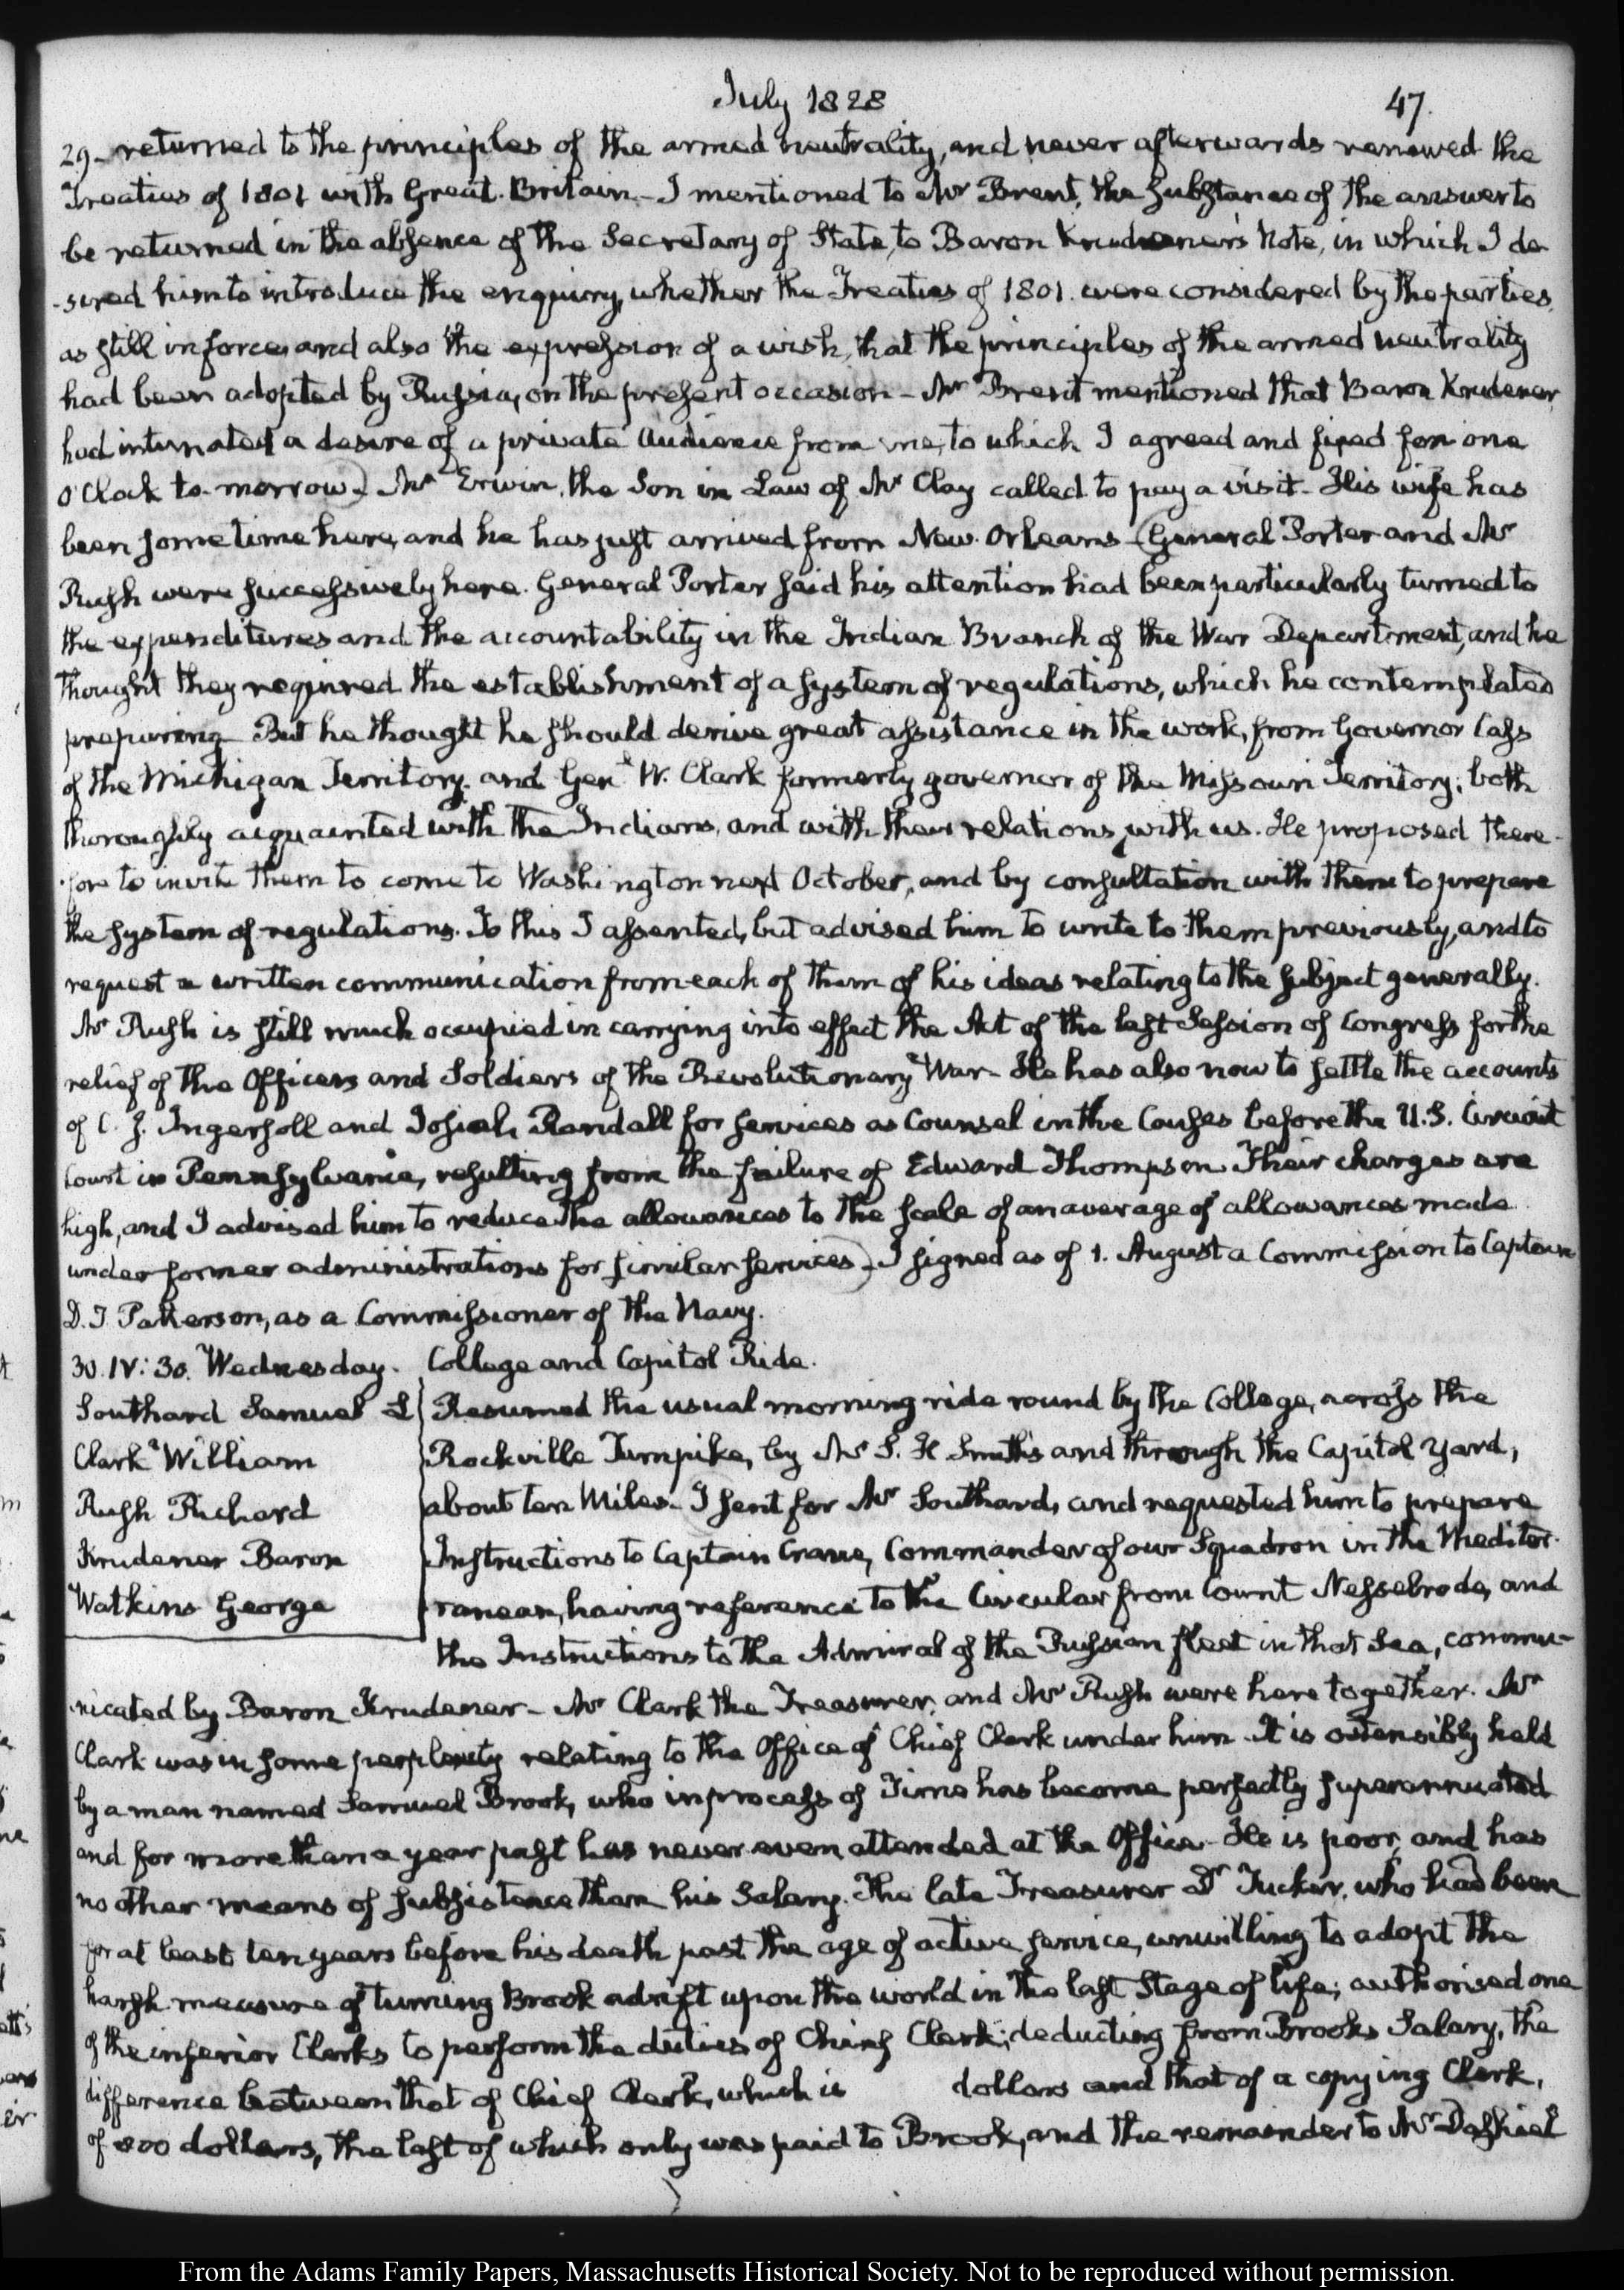 July 1828
47.
29– returned to the principles of the armed neutrality, and never afterwards renewed the
Treaties of 1801 with Great-Britain.– I mentioned to Mr Brent, the substance of the answer to
be returned in the absence of the Secretary of State, to Baron Krudener's Note, in which I de-
-sired him to introduce the enquiry, whether the Treaties of 1801. were considered by the parties,
as still in force, and also the expression of a wish, that the principles of the armed neutrality
had been adopted by Russia, on the present occasion– Mr Brent mentioned that Baron Krudener
had intimated a desire of a private Audience from me, to which I agreed and fixed for one
O'Clock to-morrow) Mr Erwin, the Son in Law of Mr Clay called to pay a visit– His wife has
been sometime here, and he has just arrived from New-Orleans– (General Porter and Mr
Rush were successively here. General Porter said his attention had been particularly turned to
the expenditures and the accountability in the Indian Branch of the War Department, and he
thought they required the establishment of a system of regulations, which he contemplated
preparing– But he thought he should derive great assistance in the work, from Governor Cass
of the Michigan Territory. and Genl W. Clark formerly governor of the Missouri Territory; both
thoroughly acquainted with the Indians, and with their relations with us. He proposed there-
-fore to invite them to come to Washington next October, and by consultation with them to prepare
the system of regulations. To this I assented, but advised him to write to them previously, and to
request a written communication from each of them of his ideas relating to the subject generally.
Mr Rush is still much occupied in carrying into effect the Act of the last Session of Congress for the
relief of the Officers and Soldiers of the Revolutionary War– He has also now to settle the accounts
of C. J. Ingersoll and Josiah Randall for services as Counsel in the Causes before the U.S. Circuit
Court in Pennsylvania, resulting from the failure of Edward Thompson. Their charges are
high, and I advised him to reduce the allowances to the scale of an average of allowances made
under former administrations for similar services)– I signed as of 1. August a Commission to Captain
D. T. Patterson, as a Commissioner of the Navy.
30. IV: 30. Wednesday. College and Capitol Ride.
Southard Samuel L
Clark William
Rush Richard
Krudener Baron
Watkins George
Resumed the usual morning ride round by the College, across the
Rockville Turnpike, by Mr S. H. Smith's and through the Capitol yard,
about ten Miles– I sent for Mr Southard, and requested him to prepare
Instructions to Captain Crane, Commander of our Squadron in the Mediter-
ranean, having reference to the Circular from Count Nesselrode, and
the Instructions to the Admiral of the Russian fleet in that Sea, commu-
-nicated by Baron Krudener– Mr Clark the Treasurer, and Mr Rush were here together. Mr
Clark was in some perplexity relating to the Office of Chief Clerk under him– It is ostensibly held
by a man named Samuel Brook, who in process of Time has become perfectly superannuated
and for more than a year past has never even attended at the Office– He is poor, and has
no other means of subsistence than his Salary. The late Treasurer Dr Tucker, who had been
for at least ten years before his death past the age of active service, unwilling to adopt the
harsh measure of turning Brook adrift upon the world in the last Stage of life; authorised one
of the inferior Clerks to perform the duties of Chief Clerk; deducting from Brooks Salary, the
difference between that of Chief Clerk, which is dollars and that of a copying Clerk,
of 800 dollars, the last of which only was paid to Brook, and the remainder to Mr Dashiel
From the Adams Family Papers, Massachusetts Historical Society. Not to be reproduced without permission.